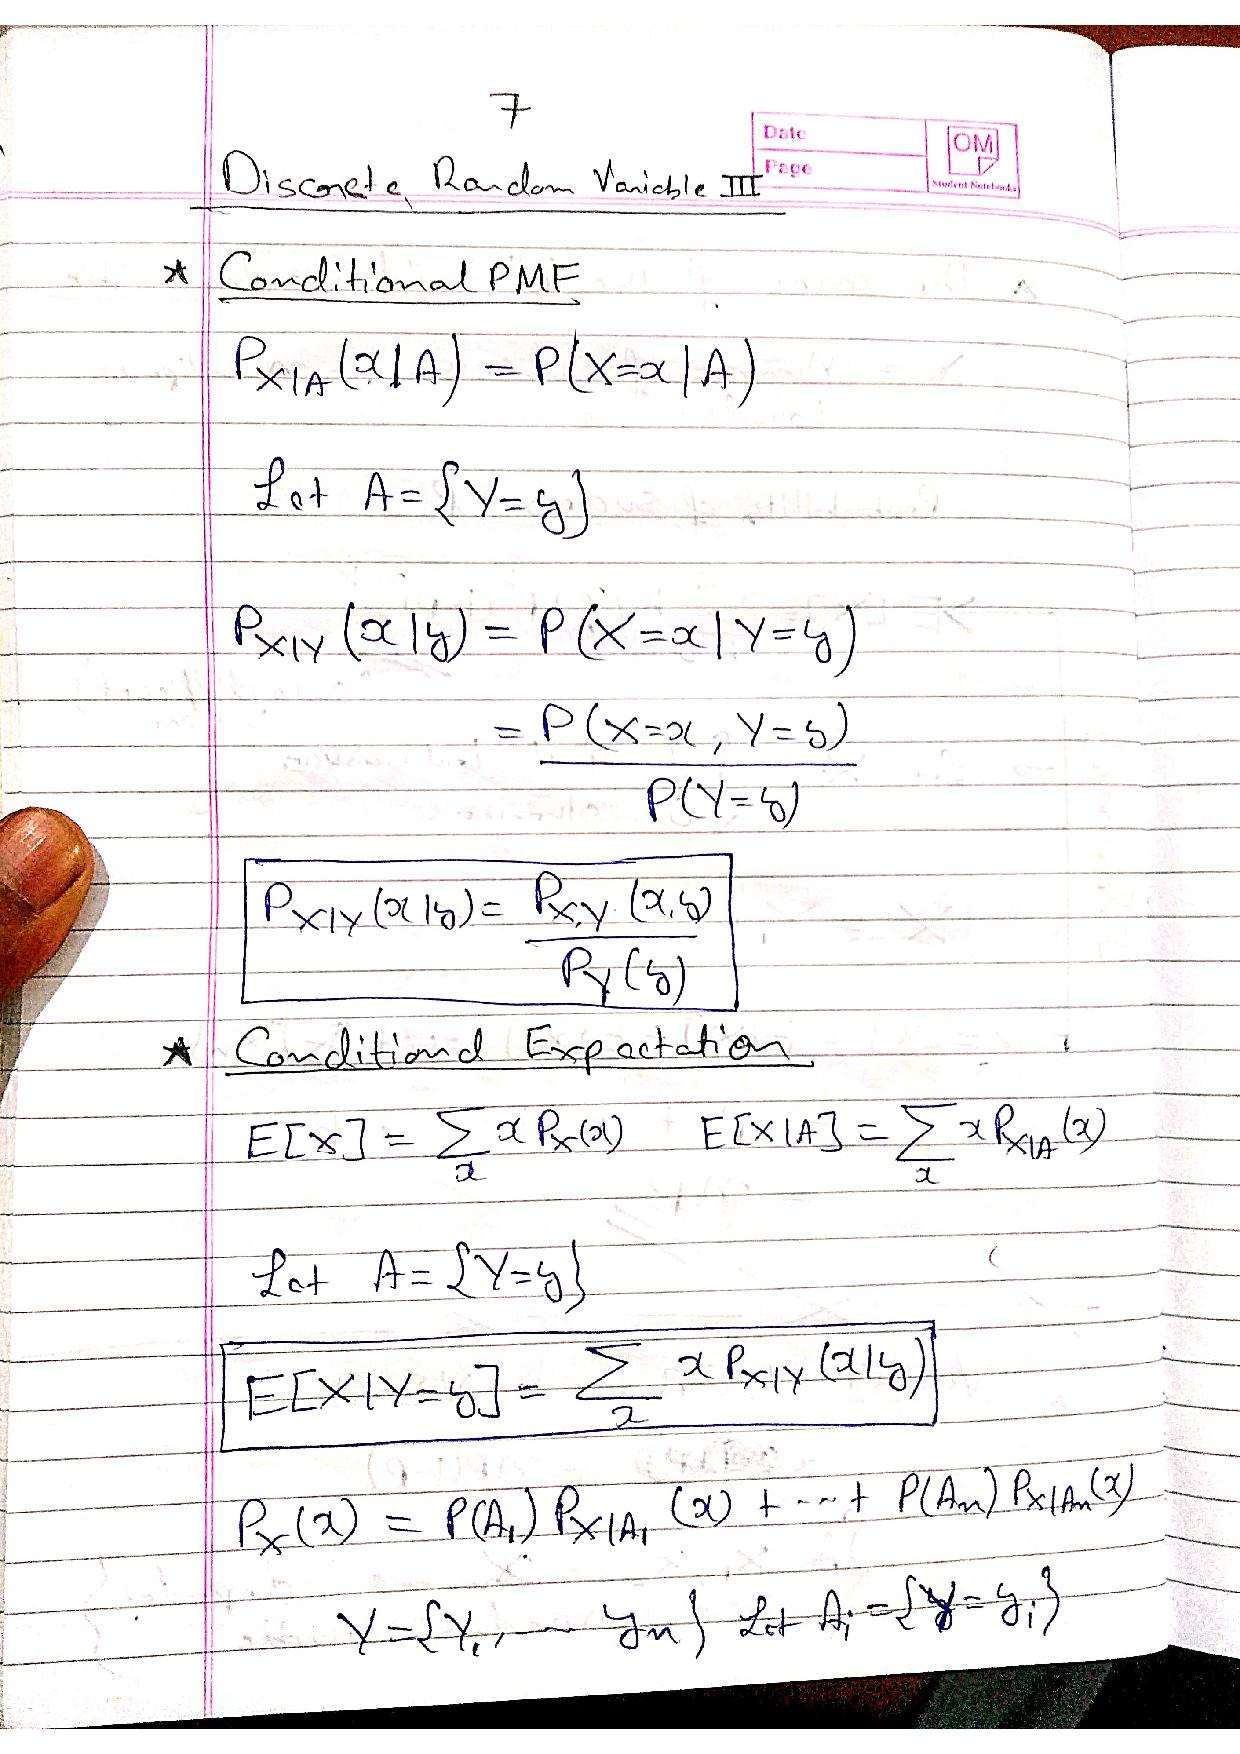 7
Date
Page
OM
Student Notebooks
Discrete Random Variable III
* Conditional PMF
P_{X|A}(x|A) = P(X=x|A)
Let A={Y=y}
P_{X|Y}(x|y) = P(X=x|Y=y)
= P(X=x, Y=y)
P(Y=y)
P_{X|Y}(x|y) = P_{X,Y}(x,y)
P_Y(y)
* Conditional Expectation
E[X] = ∑_x x P_X(x) E[X|A] = ∑_x x P_{X|A}(x)
Let A={Y=y}
E[X|Y=y] = ∑_x x P_{X|Y}(x|y)
P_X(x) = P(A_1) P_{X|A_1}(x) + ... + P(A_n) P_{X|A_n}(x)
Y={Y_1, ... y_n} Let A_i={Y=y_i}